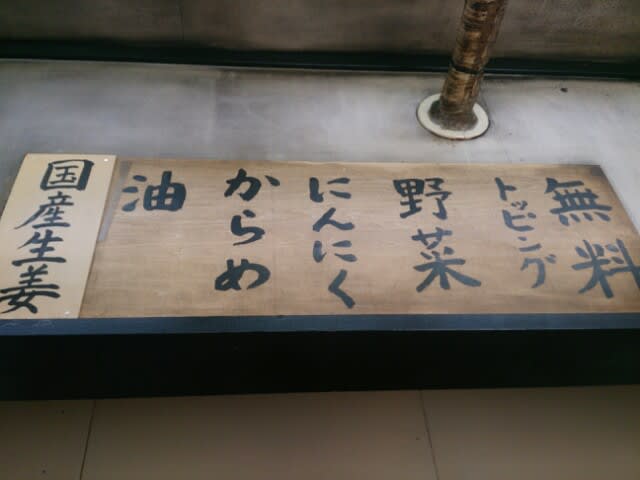 無料
トッピング
野菜
にんにく
からめ
油
国産生姜